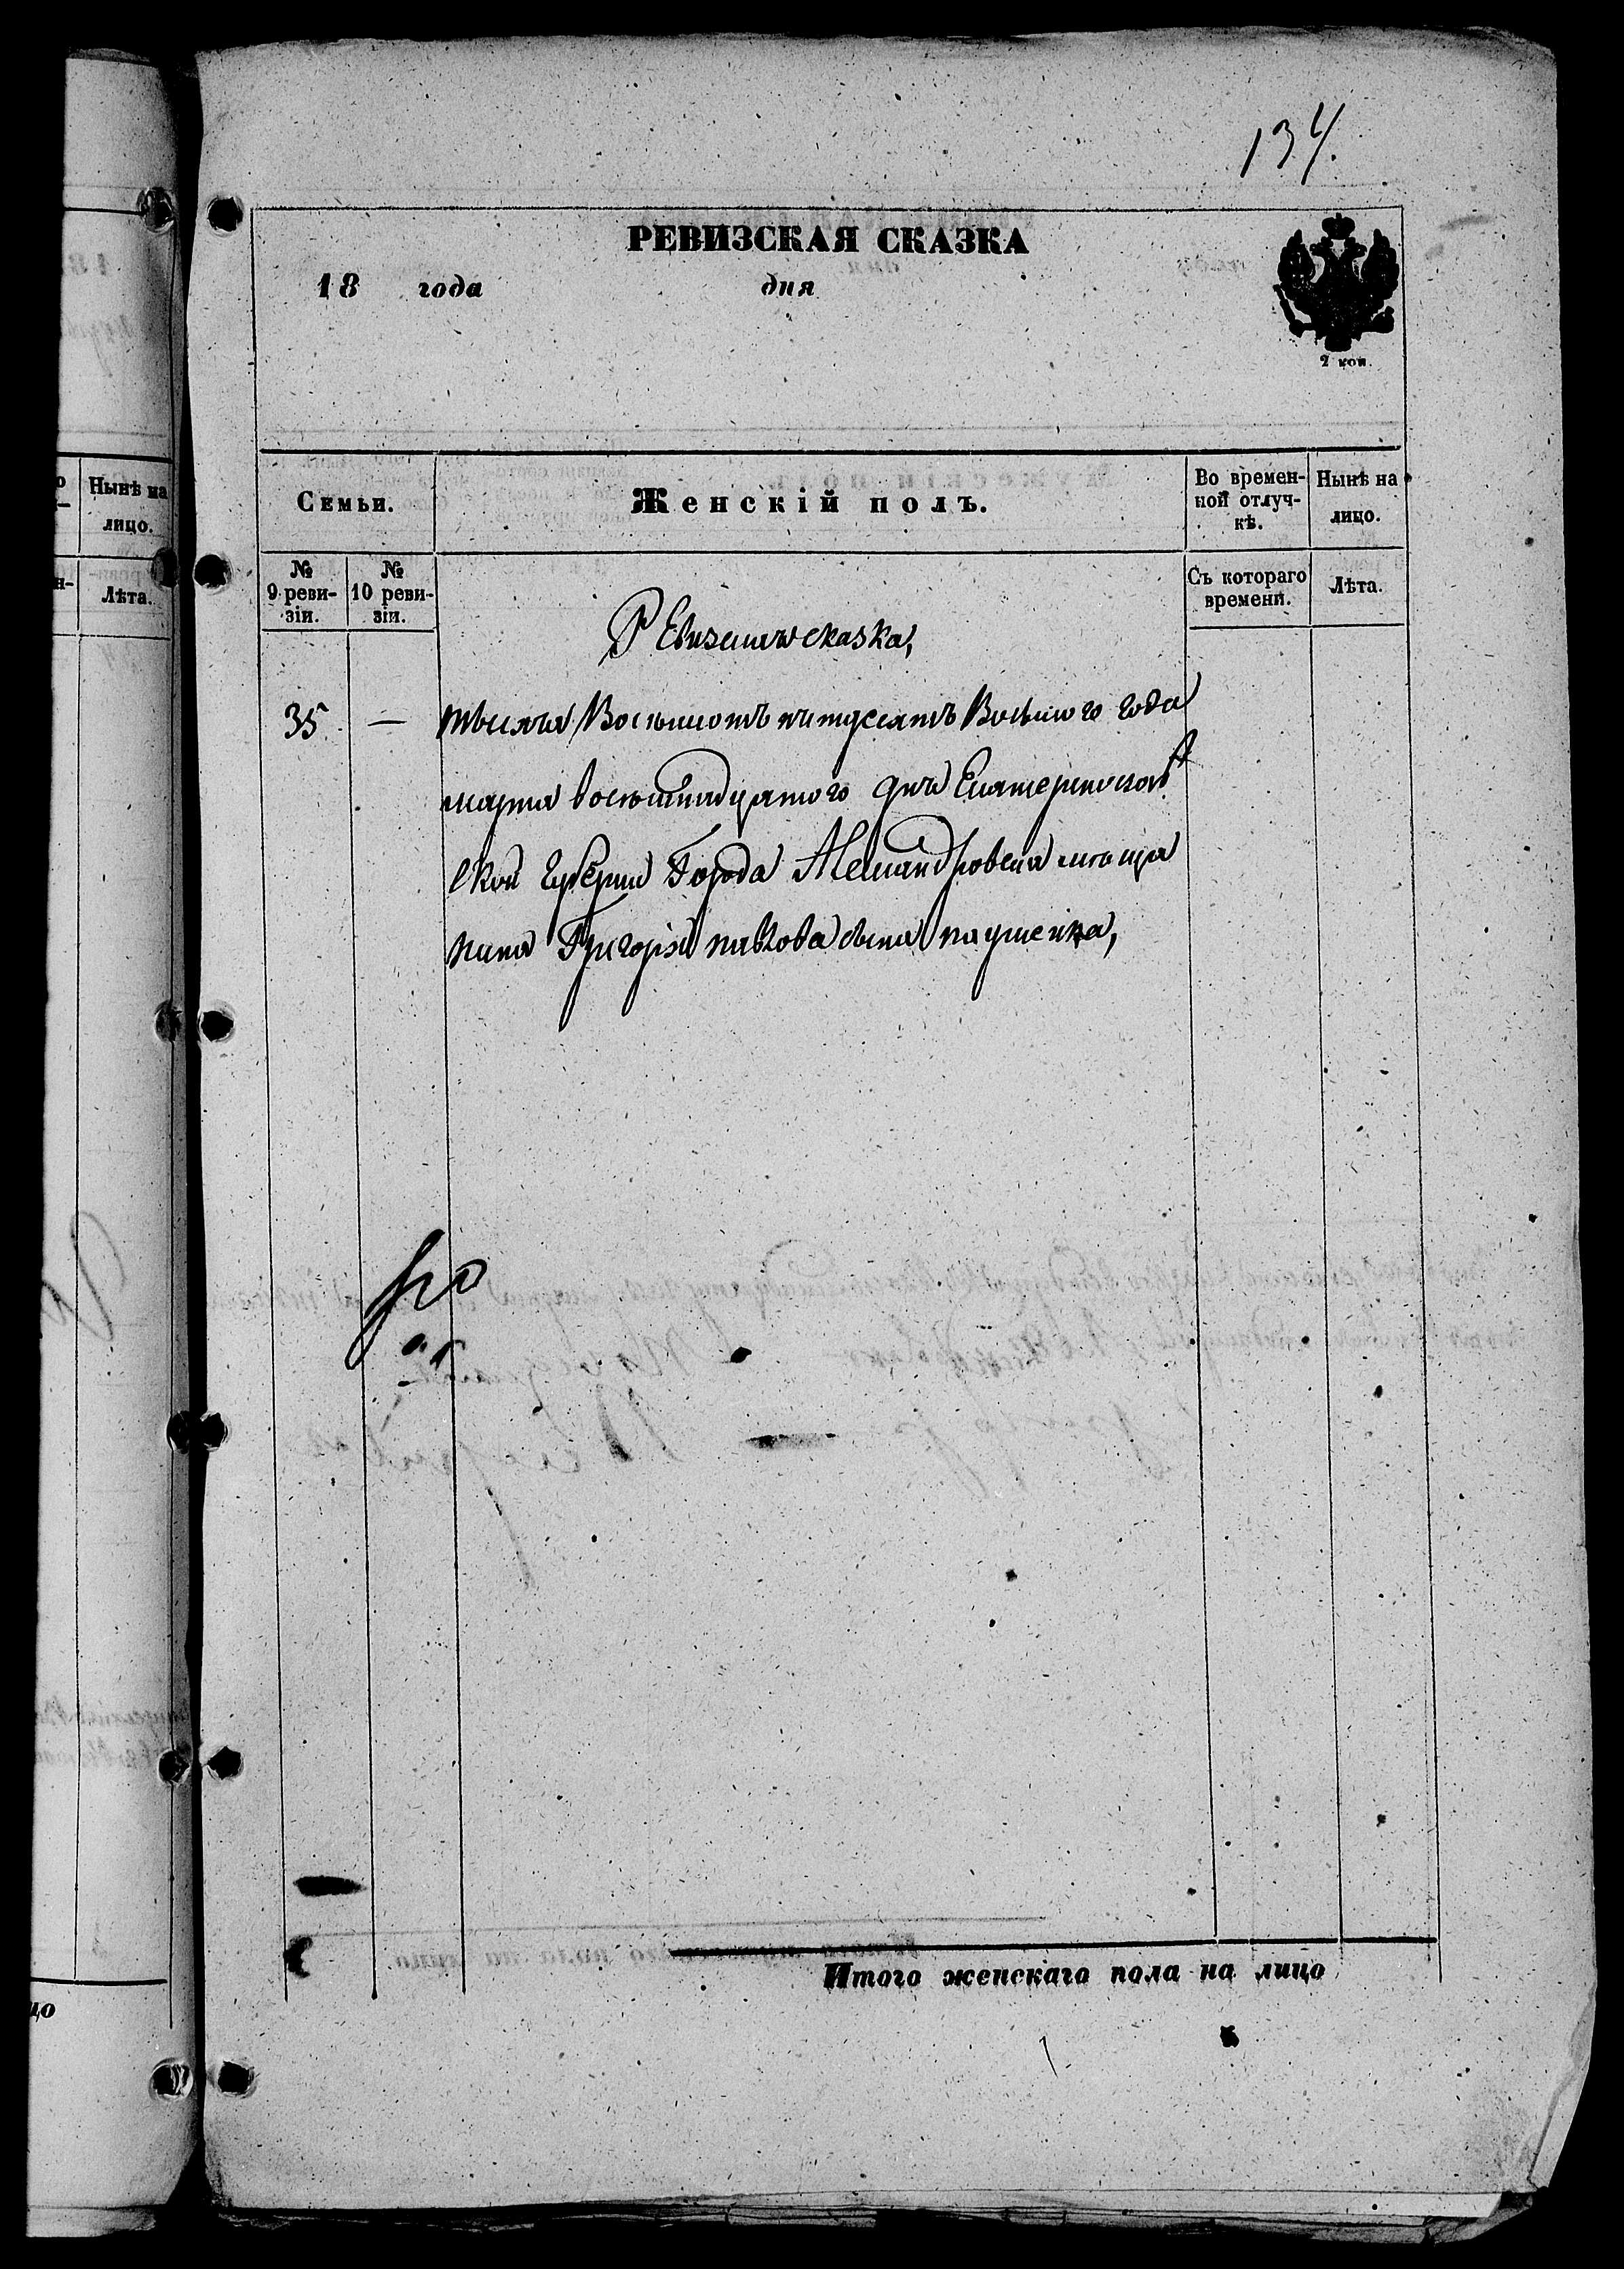 134.
РЕВИЗСКАЯ СКАЗКА
18 года дня
2 коп.
Семьи.
Женскій полъ.
Во времен-
ной отлуч-
кѣ.
Нынѣ на
лицо.
№
9 реви-
зіи.
№
10 реви-
зіи.
Съ котораго
времени.
Лѣта.
сказка,
35 — тысяча Восемьсотъ пятдесятъ Восьмого года
марта восѣмнадцатого дня Екатеринослав
ской Губерніи Города Александровска мѣща
нина Григорія павлова сына
Итого женскаго пола на лицо
Нынѣ на
лицо.
Лѣта.